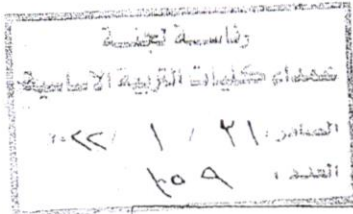 رئاسة لجنة
عمداء كليات التربية الاساسية
الصادر: ٣١ / ١ / ٢٠٢٢
العدد: ٣٥٩